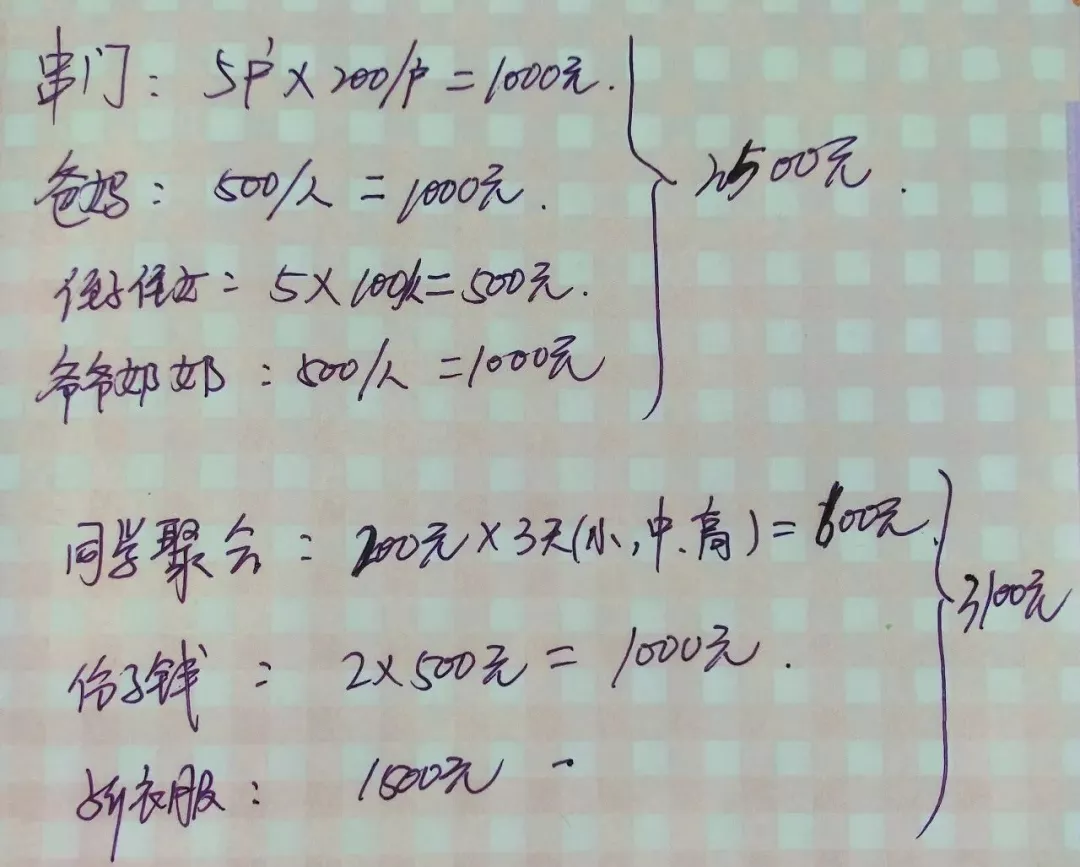 串门: 5户×200/户=1000元.
爸妈: 500/人=1000元.
3500元.
侄子侄女: 5×100/人=500元.
爷爷奶奶:500/人=1000元
同学聚会: 200元×3天(小,中、高)=600元.
3100元
份子钱: 2×500元=1000元.
新衣服: 1500元